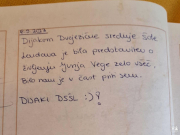 Dijakom Dvojezične srednje šole
Lendava je bila predstavitev o
življenju Jurija Vege zelo všeč.
Bilo nam je v čast priti sem.
DIJAKI DSŠL :)!